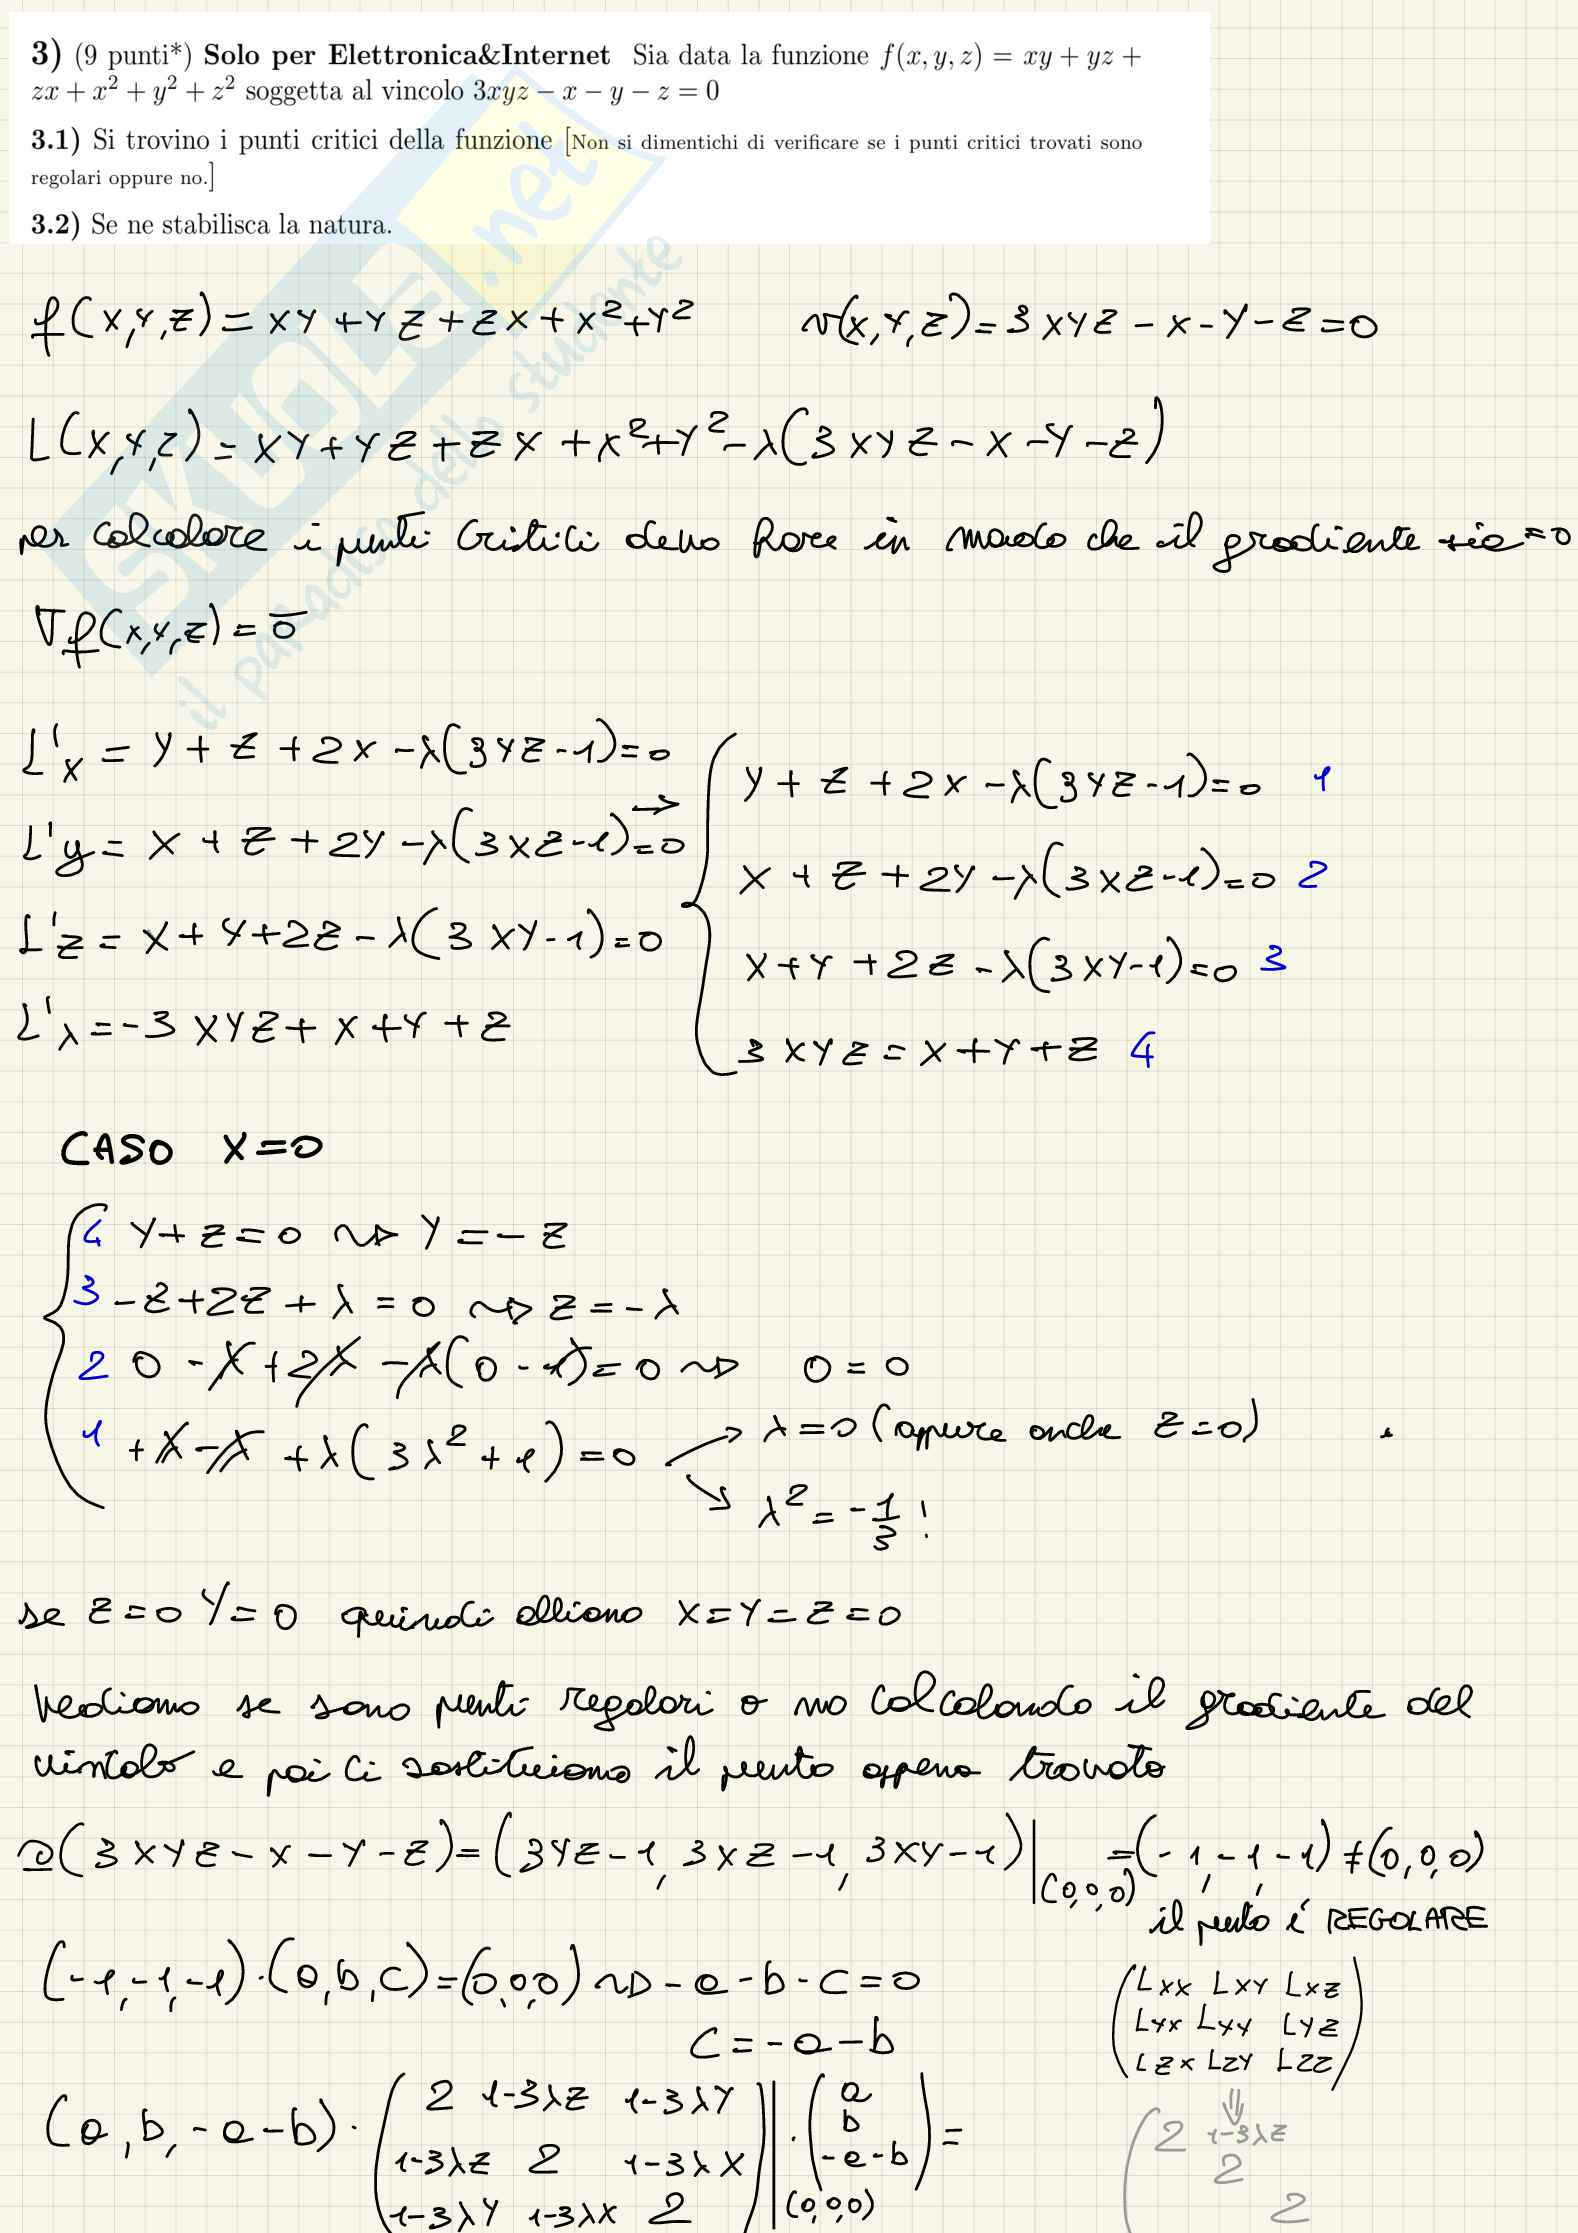 3) (9 punti*) Solo per Elettronica&Internet Sia data la funzione f(x, y, z) = xy + yz +
zx + x² + y² + z² soggetta al vincolo 3xyz − x − y − z = 0
3.1) Si trovino i punti critici della funzione [Non si dimentichi di verificare se i punti critici trovati sono
regolari oppure no.]
3.2) Se ne stabilisca la natura.
SKUOLA.net
il paradiso dello studente
f(x,y,z) = xy + yz + zx + x² + y² v(x,y,z) = 3xyz - x - y - z = 0
L(x,y,z) = xy + yz + zx + x² + y² - λ(3xyz - x - y - z)
per calcolare i punti critici devo fare in modo che il gradiente sia = 0
∇f(x,y,z) = 0̅
L'x = y + z + 2x - λ(3yz - 1) = 0
L'y = x + z + 2y - λ(3xz - 1) = 0 →
L'z = x + y + 2z - λ(3xy - 1) = 0
L'λ = -3xyz + x + y + z
y + z + 2x - λ(3yz - 1) = 0 1
x + z + 2y - λ(3xz - 1) = 0 2
x + y + 2z - λ(3xy - 1) = 0 3
3xyz = x + y + z 4
CASO x = 0
4 y + z = 0 ⇝ y = -z
3 -z + 2z + λ = 0 ⇝ z = -λ
2 0 - λ + 2λ - λ(0 - 1) = 0 ⇝ 0 = 0
1 + λ - λ + λ(3λ² + 1) = 0 ↗ λ = 0 (oppure anche z = 0)
↘ λ² = -1/3 !
se z = 0 y = 0 quindi abbiamo x = y = z = 0
Vediamo se sono punti regolari o no calcolando il gradiente del
vincolo e poi ci sostituiamo il punto appena trovato
D(3xyz - x - y - z) = (3yz - 1, 3xz - 1, 3xy - 1)|(0,0,0) = (-1, -1, -1) ≠ (0,0,0)
il punto é REGOLARE
(-1, -1, -1)·(a, b, c) = (0,0,0) ⇝ -a - b - c = 0
c = -a - b
Lxx Lxy Lxz
Lyx Lyy Lyz
Lzx Lzy Lzz
⇓
2 1-3λz
2
2
(a, b, -a-b) · ( 2 1-3λz 1-3λy
1-3λz 2 1-3λx
1-3λy 1-3λx 2 )|(0,0,0) · ( a
b
-a-b ) =